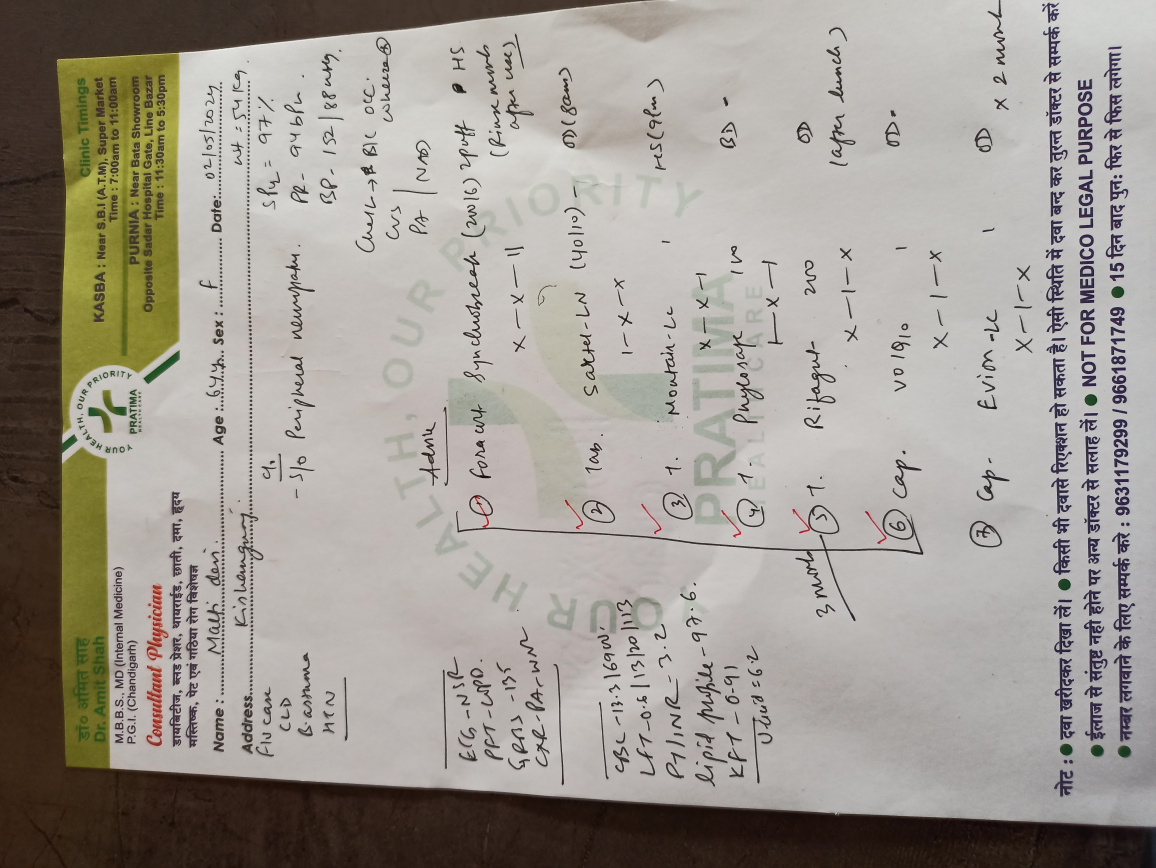 डा० अमित साह
Dr. Amit Shah
M.B.B.S., MD (Internal Medicine)
P.G.I. (Chandigarh)
Consultant Physician
डायबिटीज, ब्लड प्रेशर, थायराईड, छाती, दमा, हृदय
मस्तिष्क, पेट एवं गठिया रोग विशेषज्ञ
YOUR HEALTH, OUR PRIORITY
PRATIMA
HEALTHCARE
Clinic Timings
KASBA : Near S.B.I (A.T.M), Super Market
Time : 7:00am to 11:00am
PURNIA : Near Bata Showroom
Opposite Sadar Hospital Gate, Line Bazar
Time : 11:30am to 5:30pm
Name : Malti devi Age : 64 yr. Sex : F Date: 02/05/2024
Address Kishanganj. wt = 54 kg.
F/U case
CLD
B asthma
HTN
- S/o Peripheral neuropathy.
SPO2 = 97%
PR - 94 bpm.
BP - 152/88 mmHg.
Chest → B/L occ. wheeze
CVS
PA | NAD
ECG - NSR
PFT - WPD.
GRBS - 135
CXR-PA - WNL
CBC - 13.3/6900
LFT - 0.6/13/20/113
PT/INR - 3.2
lipid profile - 97.6.
KFT - 0.91
U. Acid = 6.2
Advice
1 Foracort Synchrobreath (200/6) 2 puff HS
x-x-11 (Rinse mouth after use)
2 Tab. Sartel-LN (40/10) - OD (8am)
1-x-x
3 T. Montair-LC 1 HS (9pm)
x-x-1
4 T. Phylosafe 100 BD
1-x-1
5 T. Rifagut 200 OD
x-1-x (after lunch)
6 Cap. Volglo 1 OD
x-1-x
3 month
7 Cap. Evion-LC 1 OD x 2 month
x-1-x
YOUR HEALTH, OUR PRIORITY
PRATIMA
HEALTHCARE
नोट : ● दवा खरीदकर दिखा लें। ● किसी भी दवासे रिएक्शन हो सकता है। ऐसी स्थिति में दवा बन्द कर तुरन्त डॉक्टर से सम्पर्क करें
● ईलाज से संतुष्ट नही होने पर अन्य डॉक्टर से सलाह लें। ● NOT FOR MEDICO LEGAL PURPOSE
● नम्बर लगवाने के लिए सम्पर्क करे : 9631179299 / 9661871749 ● 15 दिन बाद पुनः फिर से फिस लगेगा।